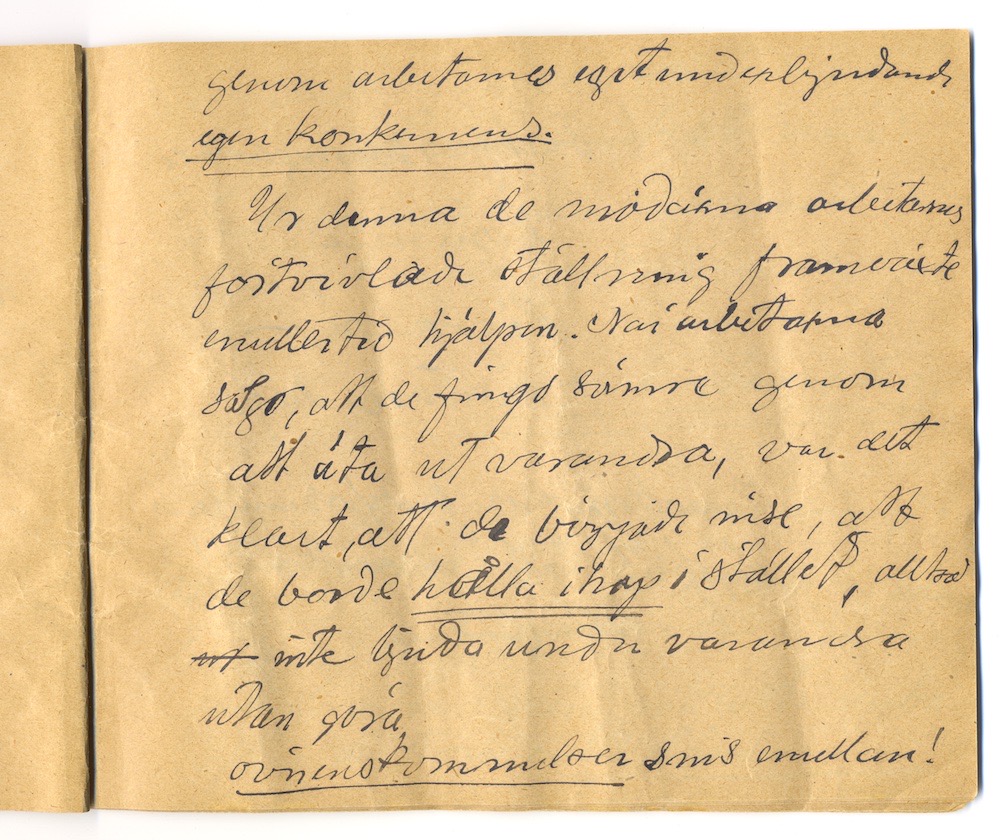 genom arbetarnes eget underbjudande
egen konkurrens.
Ur denna de moderna arbetarnes
förtvivlade ställning framväxte
emellertid hjälpen. När arbetarna
sågo, att de fingo sämre genom
att äta ut varandra, var det
klart, att de började inse, att
de borde hålla ihop i stället, alltså
inte bjuda under varandra
utan göra
överenskommelser sins emellan!